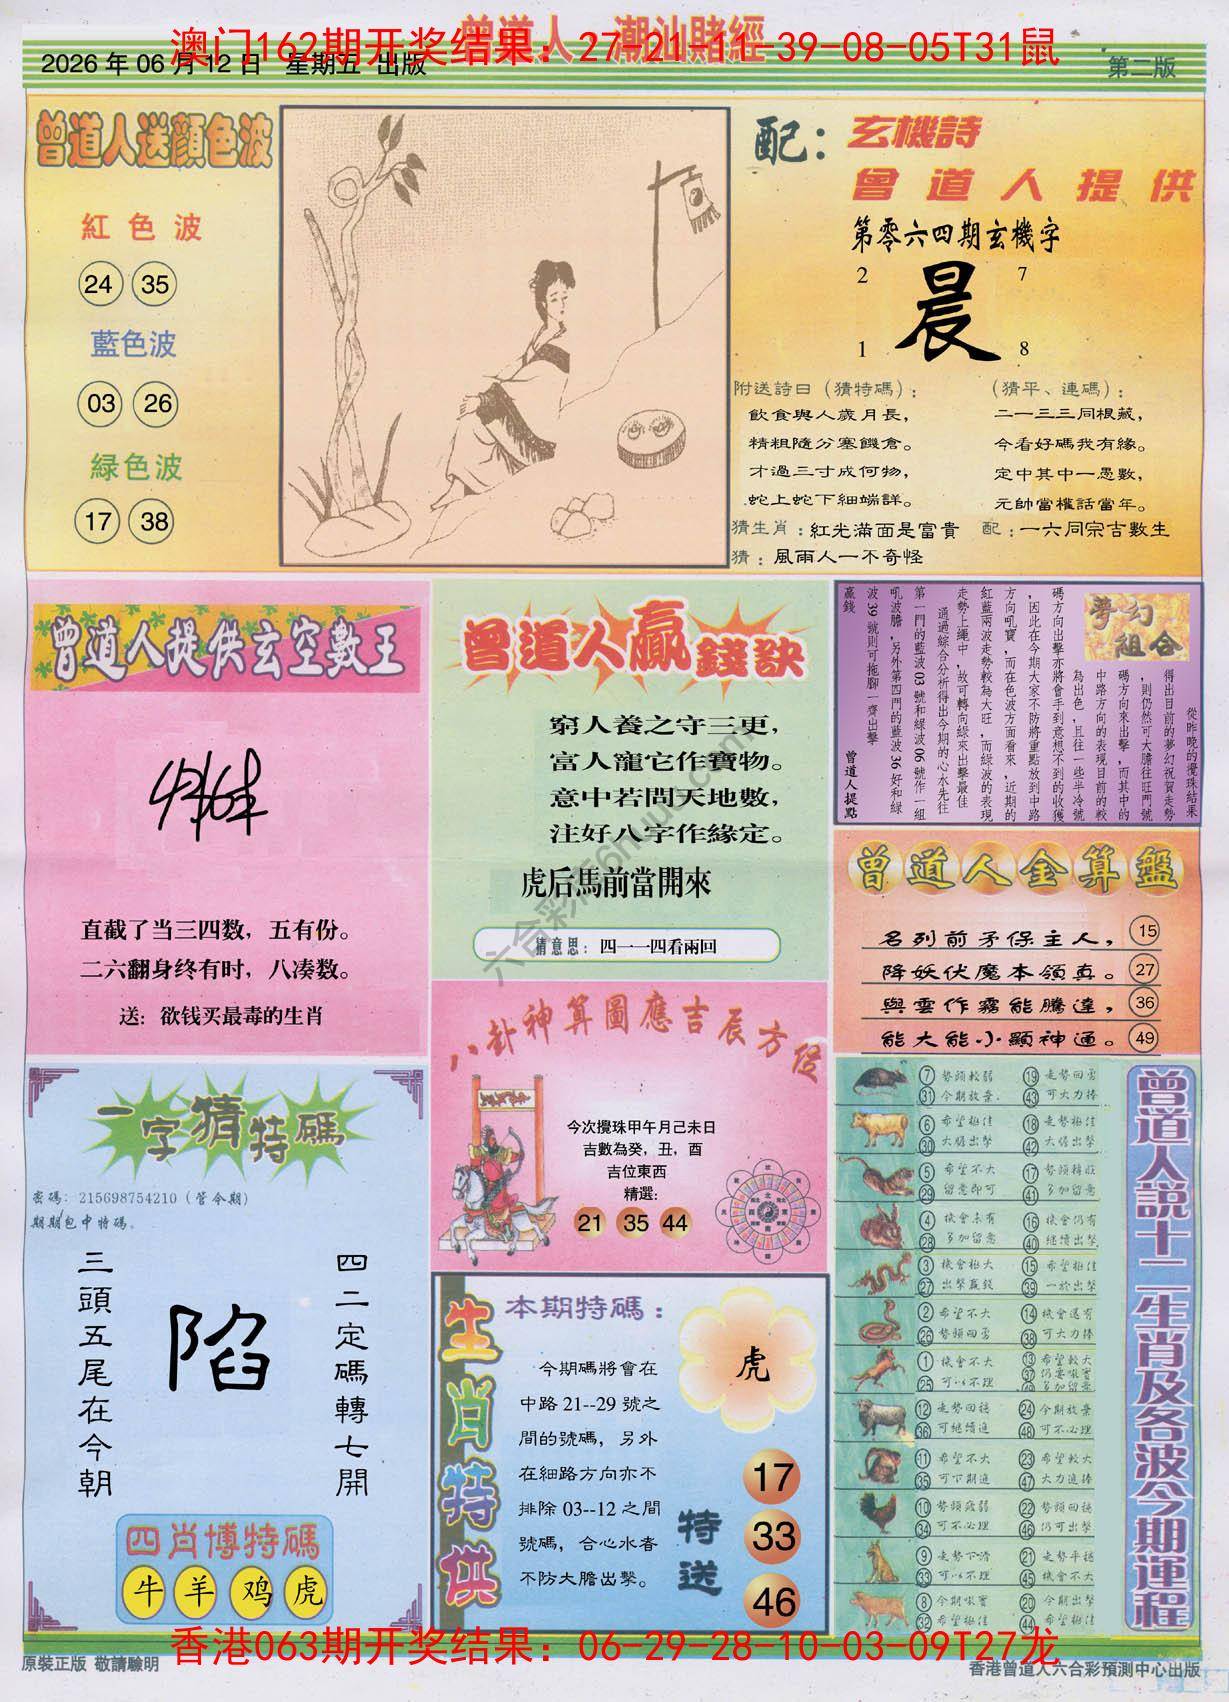 曾道人 潮汕賭經
澳门162期开奖结果：27-21-11-39-08-05T31鼠
2026 年 06 月 12 日　星期五 出版
第二版
曾道人送顏色波
紅色波
24 35
藍色波
03 26
緑色波
17 38
配：玄機詩
曾道人提供
第零六四期玄機字
2 7
晨
1 8
附送詩曰（猜特碼）：
飲食與人歲月長，
精粗隨分塞饑倉。
才過三寸成何物，
蛇上蛇下細端詳。
（猜平、連碼）：
二一三三同根藏，
今看好碼我有緣。
定中其中一愚數，
元帥當權話當年。
猜生肖：紅光滿面是富貴
配：一六同宗吉數生
猜：風兩人一不奇怪
曾道人提供玄空數王
直截了当三四数，五有份。
二六翻身终有时，八凑数。
送：欲钱买最毒的生肖
曾道人贏錢訣
窮人養之守三更，
富人寵它作寶物。
意中若問天地數，
注好八字作緣定。
虎后馬前當開來
猜意思：四一一四看兩回
夢幻組合
從昨晚的攪珠結果
得出目前的夢幻祝賀走勢
，則仍然可大膽往旺門號
碼方向來出擊，而其中的
中路方向的表現目前的較
為出色，且往一些半冷號
碼方向出擊亦將會手到意想不到的收獲
，因此在今期大家不防將重點放到中路
方向吼寶，而在色波方面看來，近期的
紅藍兩波走勢較為大旺，而綠波的表現
走勢上繩中，故可轉向綠來出擊最佳
通過綜合分析得出今期的心水先往
第一門的藍波03號和綠波06號作一組
吼波膽，另外第四門的藍波36好和綠
波39號則可拖腳一齊出擊
贏錢
曾道人提點
曾道人金算盤
名列前矛保主人，15
降妖伏魔本領真。27
與雲作霧能騰達，36
能大能小顯神通。49
八卦神算圖應吉辰方位
今次攪珠甲午月己未日
吉數為癸，丑，酉
吉位東西
精選：
21 35 44
一字猜特碼
密碼：215698754210（管今期）
期期包中特碼。
四二定碼轉七開
陷
三頭五尾在今朝
四肖博特碼
牛 羊 鸡 虎
生肖特供
本期特碼：
虎
今期碼將會在
中路 21--29 號之
間的號碼，另外
在細路方向亦不
排除 03--12 之間
號碼，合心水者
不防大膽出擊。
特送
17
33
46
曾道人説十二生肖及各波今期運程
7 勢頭較弱 19 走勢回勇
31 今期放棄 43 可大力捧
6 希望極佳 18 走勢極佳
30 大膽出擊 42 大膽出擊
5 希望不大 17 勢頭轉旺
29 留意即可 41 多加留意
4 機會未有 16 機會仍有
28 多加留意 40 繼續出擊
3 機會極大 15 希望極佳
27 出擊贏錢 39 一於出擊
2 希望不大 14 機會還有
26 勢頭回勇 38 可大力捧
1 機會不大 13 希望較大
25 可以不理 37
12 走勢回穩 24 今期放棄
36 可繼續追 48 可不必理
11 希望不大 23 希望較大
35 可下期追 47 大力追捧
10 勢頭疲弱 22 勢頭回穩
34 可不必理 46 仍可出擊
9 走勢下滑 21 走勢平穩
33 可以不理 45 機會不大
8 今期吼寶 20 今期出擊
32 希望極佳 44 希望極佳
香港063期开奖结果：06-29-28-10-03-09T27龙
原裝正版 敬請驗明
香港曾道人六合彩預測中心出版